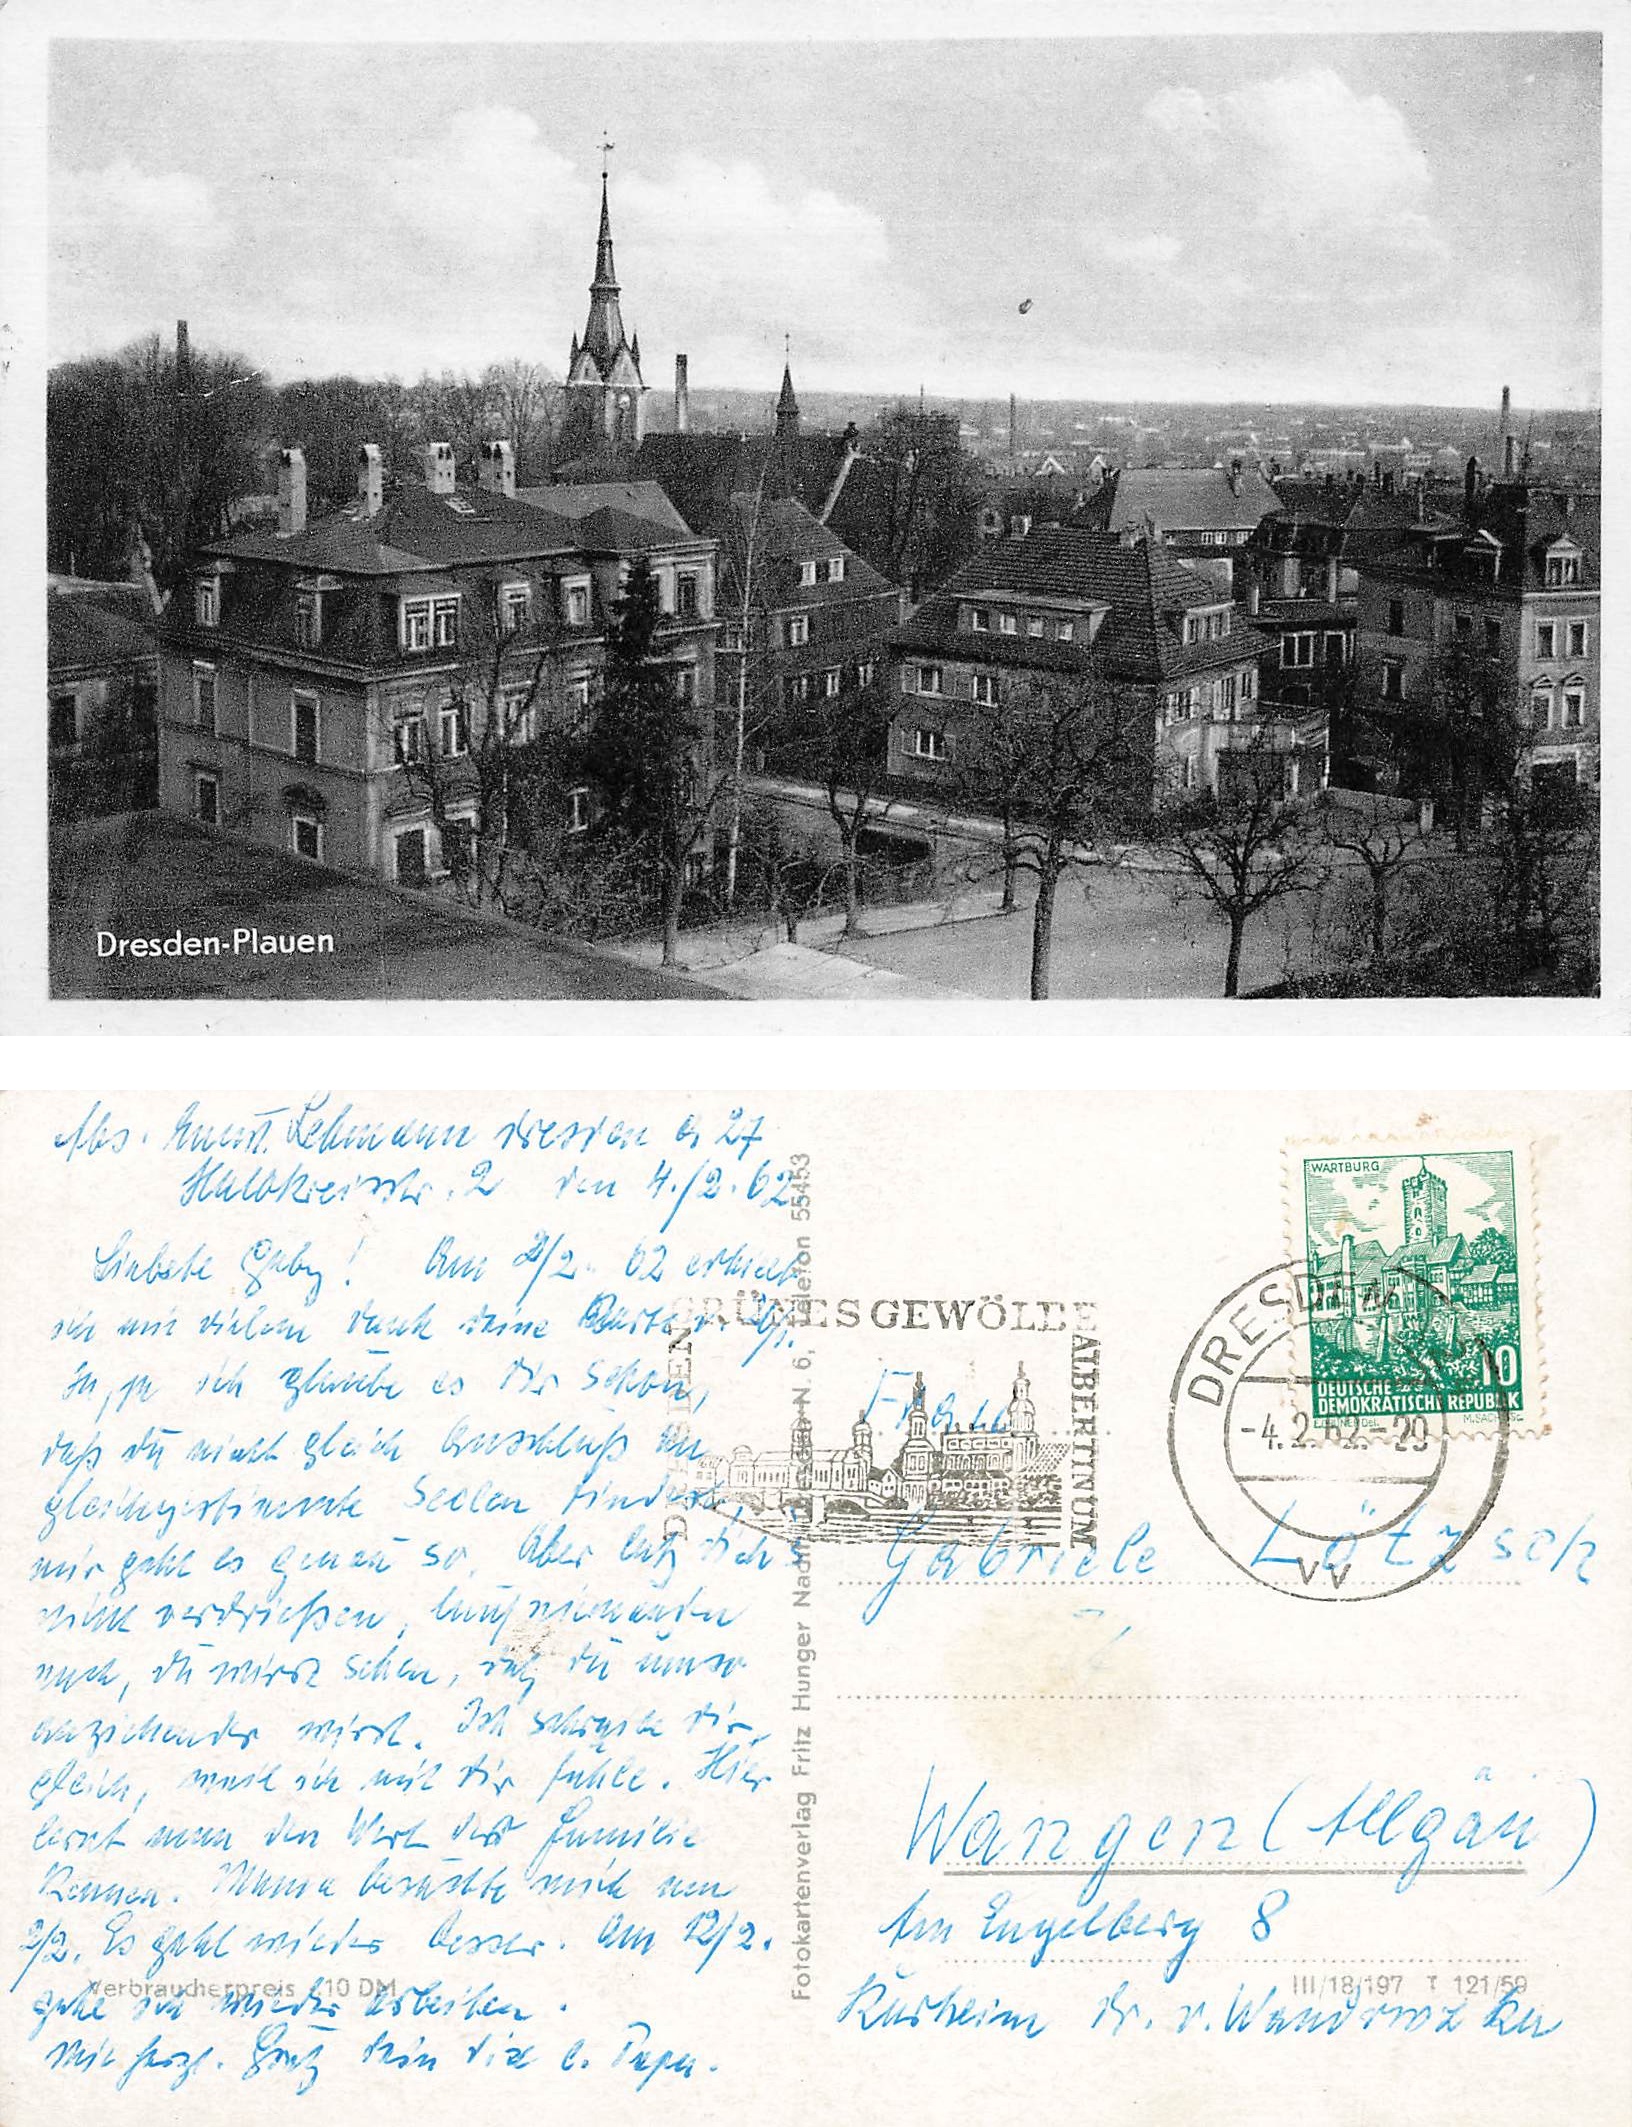 Dresden-Plauen
Abs. Lehmann Dresden A 27
2 den 4./2. 62
Liebste Gaby! Am 2/2. 62 erhielt
ich mit vielem Dank deine
Ja, ja ich glaube es Dir schon,
daß du nicht gleich Anschluß an
gleichgestimmte Seelen findest,
mir geht es genau so. Aber laß dich
nicht verdrießen, lauf niemanden
nach, du wirst sehen, daß du umso
anziehender wirst. Ich schreibe dir
gleich, weil ich mit dir fühle. Hier
lernt man den Wert der Familie
kennen. Mama besuchte mich am
2/2. Es geht wieder besser. Am 12/2.
gehe ich wieder arbeiten.
Mit herzl. Gruß dein
Verbraucherpreis 10 DM
Fotokartenverlag Fritz Hunger Nachf. Dresden N. 6, Telefon 55453
GRÜNES GEWÖLBE
DRESDEN
ALBERTINUM
WARTBURG
10
DEUTSCHE
DEMOKRATISCHE REPUBLIK
DRESDEN
-4.2.62-20
Frau
Gabriele Lötzsch
Wangen (Allgäu)
Am Engelberg 8
Kurheim Dr. v.
III/18/197 T 121/59